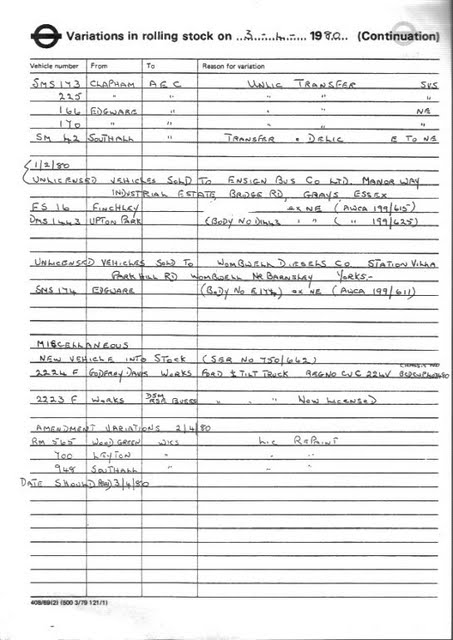 Variations in rolling stock on ..3.-.4.-... 1980.. (Continuation)
Vehicle number From To Reason for variation
SMS 143 CLAPHAM AEC UNLIC TRANSFER SVS
225 " " " "
166 EDGWARE " " NE
170 " " " "
SM 42 SOUTHALL " TRANSFER & DELIC E TO NE
{1/2/80
UNLICENSED VEHICLES SOLD TO ENSIGN BUS CO LTD. MANOR WAY
INDUSTRIAL ESTATE BRIDGE RD, GRAYS ESSEX
FS 16 FINCHLEY ex NE (AWCA 199/615)
DMS 1443 UPTON PARK (BODY NO D1443 " " ( " 199/625)
UNLICENSED VEHICLES SOLD TO WOMBWELL DIESELS CO STATION VILLA
PARK HILL RD WOMBWELL NR BARNSLEY YORKS-
SMS 174 EDGWARE (BODY NO E174) ex NE (AWCA 199/611)
MISCELLANEOUS
NEW VEHICLE INTO STOCK (SER NO 750/642)
2224 F GODFREY DAVIS WORKS FORD TILT TRUCK REG NO CUC 224V
2223 F WORKS DSM RSA BUSES " " NOW LICENSED
AMENDMENT VARIATIONS 2/4/80
RM 565 WOOD GREEN WKS LIC REPAINT
700 LEYTON " " "
948 SOUTHALL " " "
DATE SHOULD READ 3/4/80
408/89(2) (500 3/79 121/1)